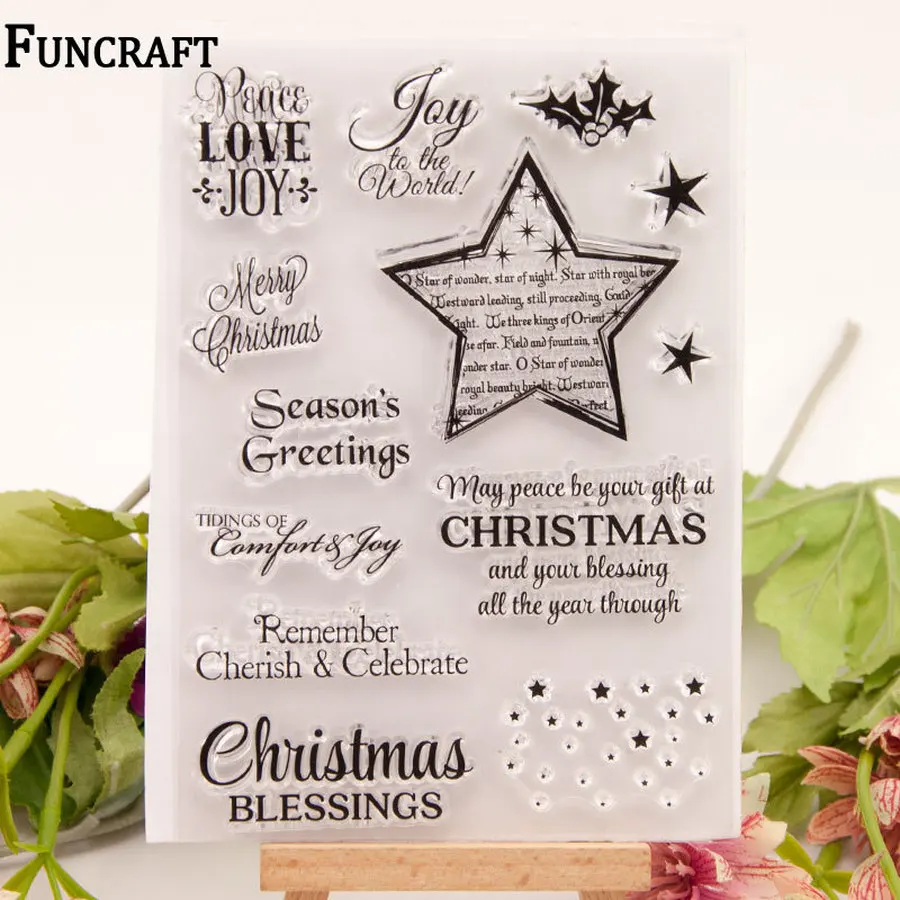 FUNCRAFT
Peace
LOVE
JOY
Joy
to the
World!
O Star of wonder, star of night. Star with royal be
Westward leading, still proceeding, Guid
ight. We three kings of Orient
se afar. Field and fountain,
onder star. O Star of wonder
royal beauty bright. Westwar
eeding
Perfect
Merry
Christmas
Season's
Greetings
TIDINGS OF
Comfort & Joy
May peace be your gift at
CHRISTMAS
and your blessing
all the year through
Remember
Cherish & Celebrate
Christmas
BLESSINGS